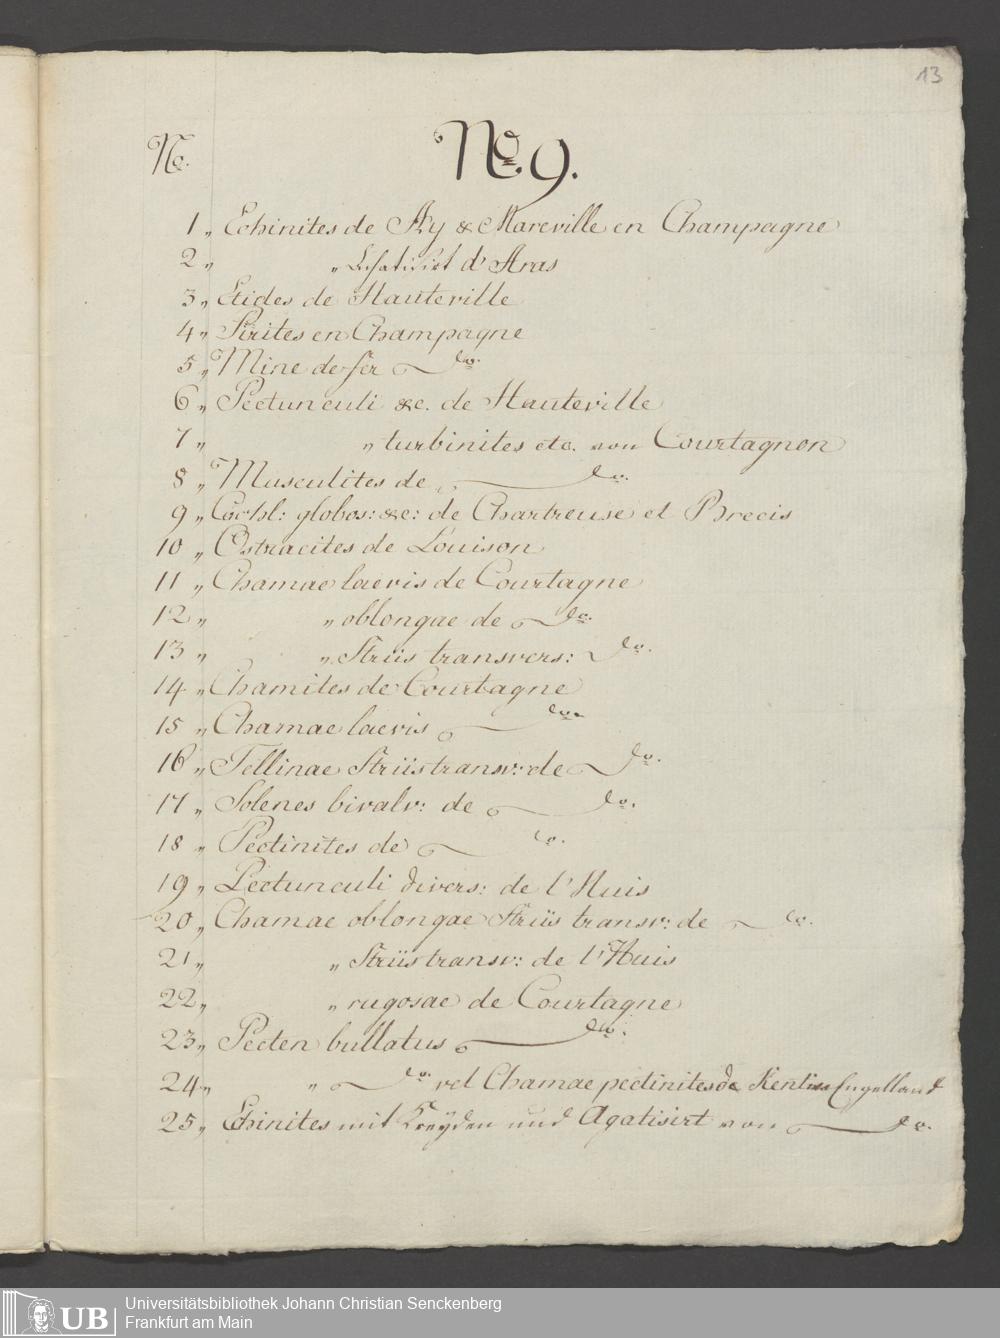 13
No. No. 9.
1 " Echinites de Ay & Mareville en Champagne
2 " " d'Aras
3 " Etides de Hauteville
4 " Pirites en Champagne
5 " Mine de fer do.
6 " Pectunculi &c. de Hauteville
7 " " turbinites etc. von Courtagnon
8 " Musculites de do.
9 " Cochl: globos: &c: de Chartreuse et Brecis
10 " Ostracites de Louison
11 " Chamae laevis de Courtagne
12 " " oblongae de do.
13 " " Striis transvers: do.
14 " Chamites de Courtagne
15 " Chamae laevis do.
16 " Tellinae Striis transv: de do.
17 " Solenes bivalv: de do.
18 " Pectinites de do.
19 " Pectunculi divers: de l'Huis
20 " Chamae oblongae Striis transv: de do.
21 " " Striis transv: de l'Huis
22 " " rugosae de Courtagne
23 " Pecten bullatus do.
24 " " do. vel Chamae pectinites de Kent Engelland
25 " Echinites mit Kreyden und Agatisirt von do.
UB
Universitätsbibliothek Johann Christian Senckenberg
Frankfurt am Main